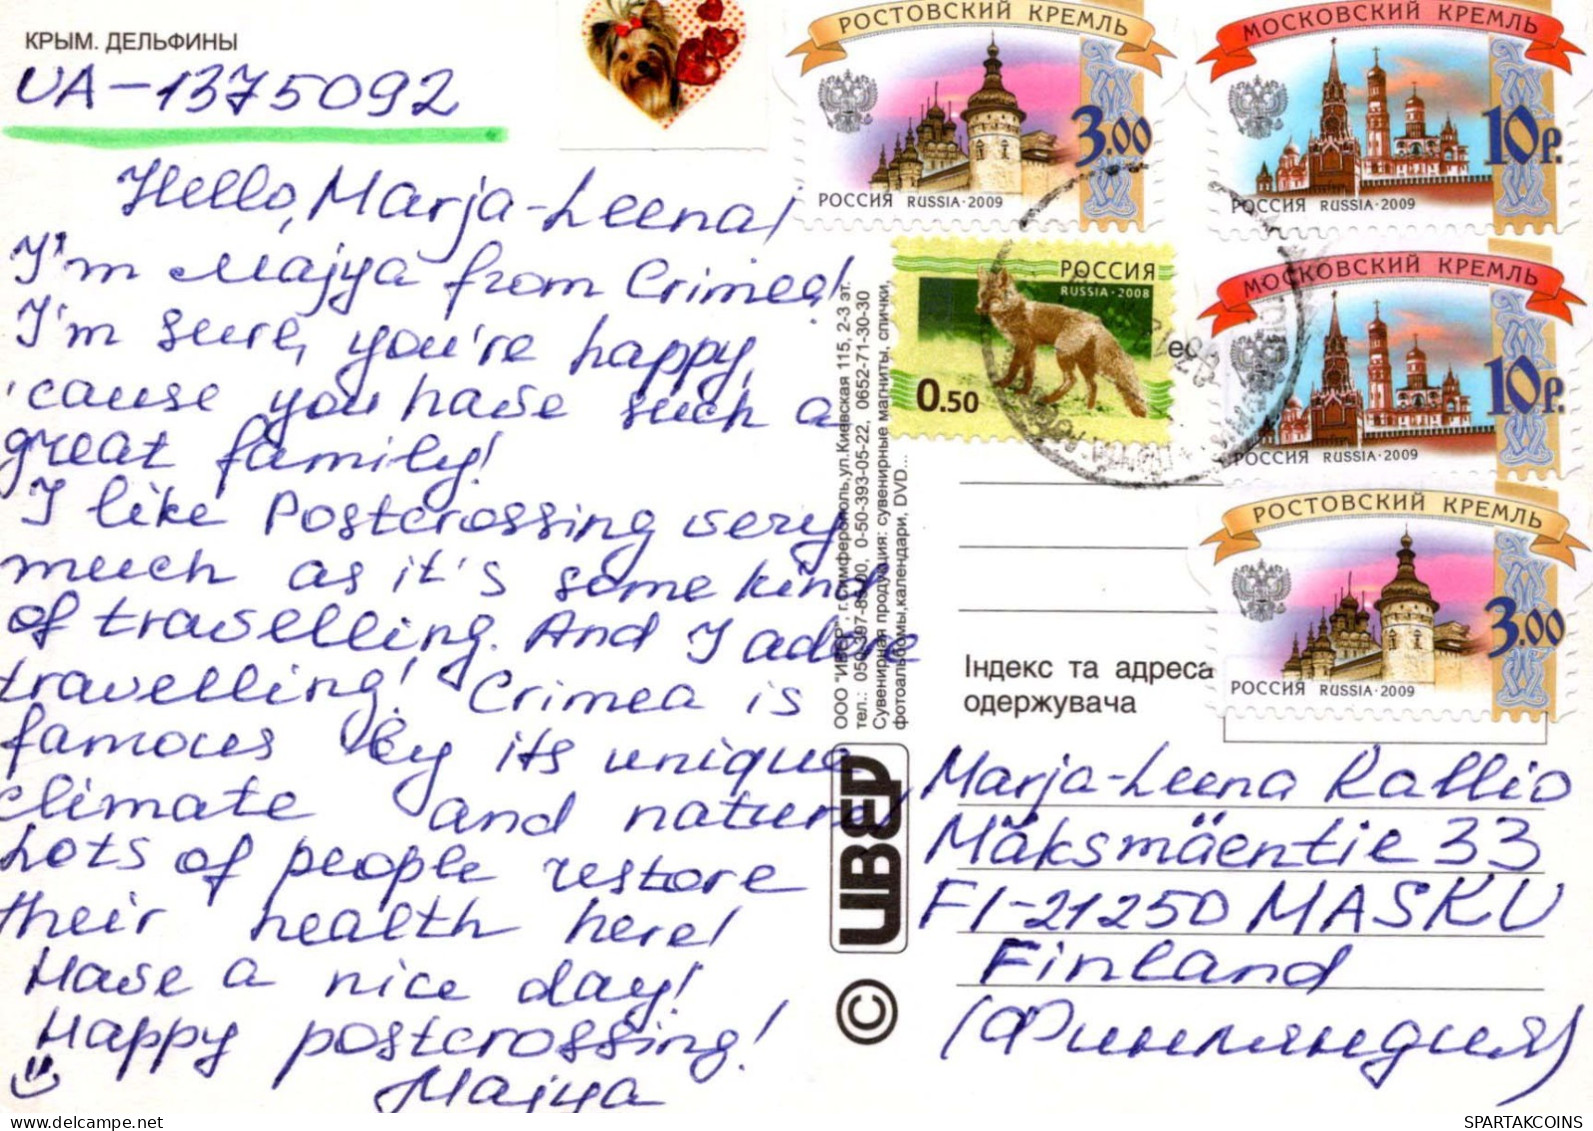 КРЫМ. ДЕЛЬФИНЫ
UA-1375092
Hello, Marja-Leena!
I'm Majya from Crimea!
I'm sure, you're happy,
'cause you have such a
great family!
I like Postcrossing very
much as it's some kind
of travelling. And I adore
travelling! Crimea is
famous by its unique
climate and nature!
Lots of people restore
their health here!
Have a nice day!
Happy postcrossing!
Majya
РОСТОВСКИЙ КРЕМЛЬ
3.00
РОССИЯ RUSSIA·2009
МОСКОВСКИЙ КРЕМЛЬ
10Р.
РОССИЯ RUSSIA·2009
РОССИЯ
RUSSIA·2008
0.50
МОСКОВСКИЙ КРЕМЛЬ
10Р.
РОССИЯ RUSSIA·2009
РОСТОВСКИЙ КРЕМЛЬ
3.00
РОССИЯ RUSSIA·2009
ООО "ИВЕР", г.Симферополь,ул.Киевская 115, 2-3 эт.
тел.: 050-397-8500, 0-50-393-05-22, 0652-71-30-30
Сувенирная продукция: сувенирные магниты, спички,
фотоальбомы,календари, DVD...
© ИВЕР
Індекс та адреса
одержувача
Marja-Leena Kallio
Mäksmäentie 33
FI-21250 MASKU
Finland
(Финляндия)
SPARTAKCOINS